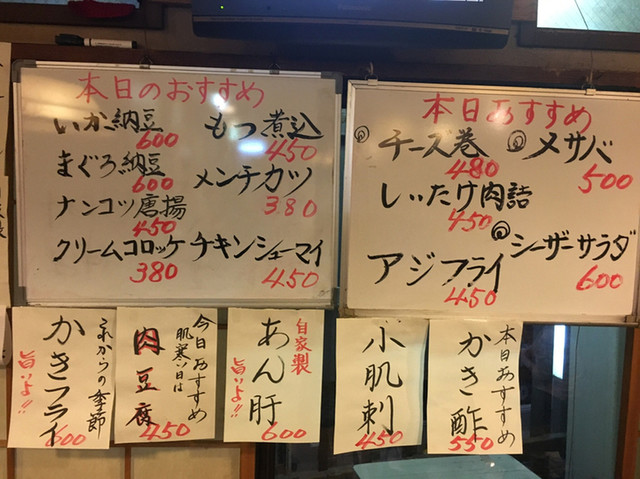 本日のおすすめ
いか納豆
600
まぐろ納豆
600
ナンコツ唐揚
450
クリームコロッケ
380
もつ煮込
450
メンチカツ
380
チキンシューマイ
450
本日おすすめ
チーズ巻
480
しいたけ肉詰
450
アジフライ
450
メサバ
500
シーザーサラダ
600
これからの季節
かきフライ
旨いよ!!
600
今日おすすめ
肌寒い日は
肉豆腐
450
自家製
あん肝
旨いよ!!
600
小肌刺
450
本日おすすめ
かき酢
550